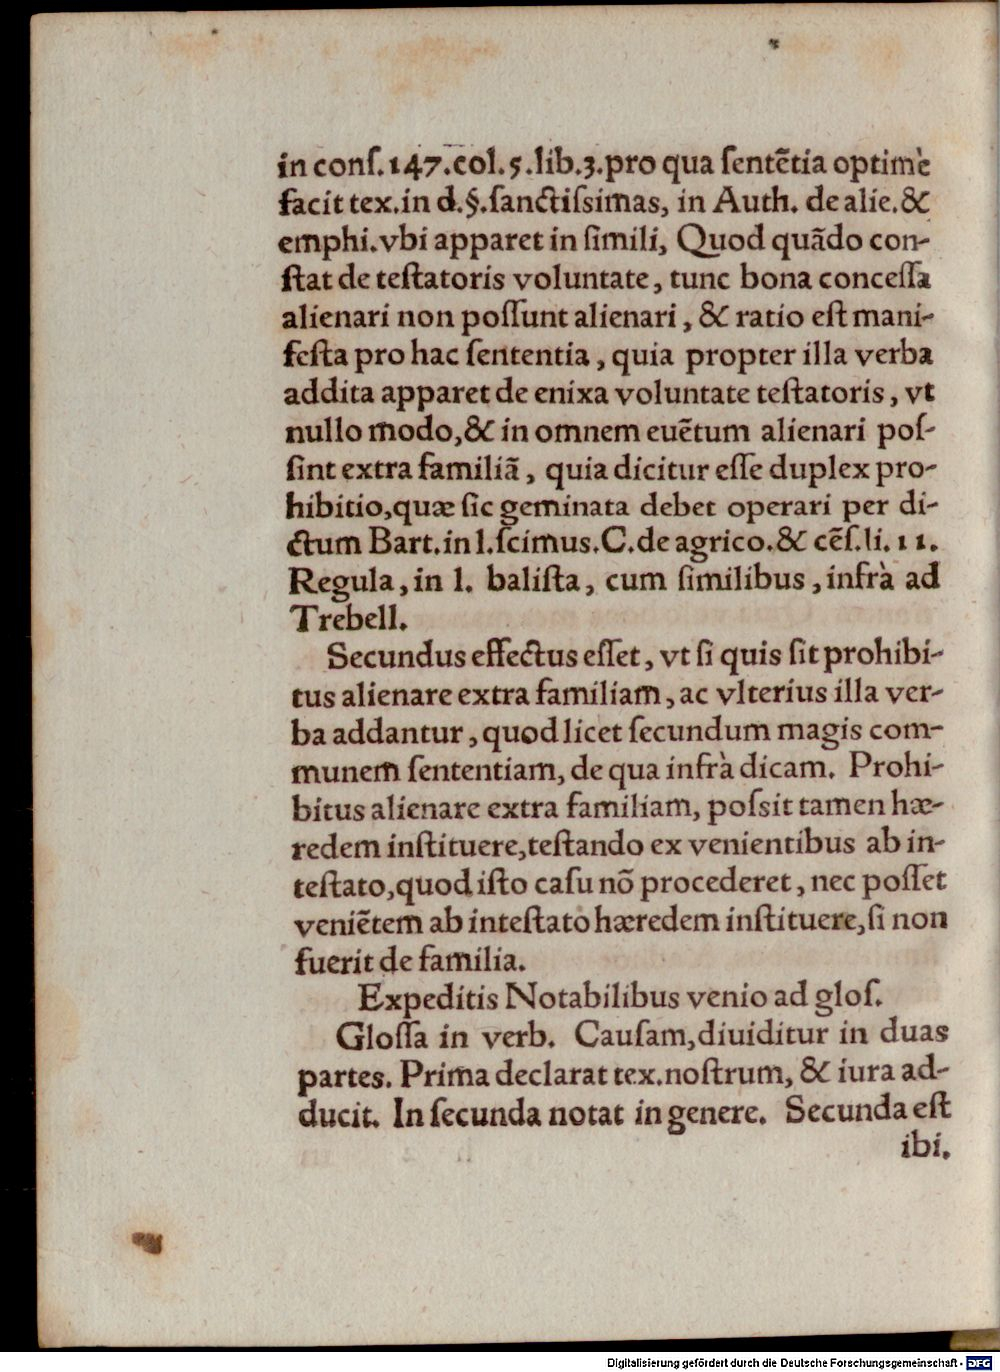 in conſ.147.col.5.lib.3.pro qua ſentẽtia optimè
facit tex.in d.§.ſanctiſsimas, in Auth. de alie.&
emphi.vbi apparet in ſimili, Quod quãdo con-
ſtat de teſtatoris voluntate, tunc bona conceſſa
alienari non poſſunt alienari, & ratio eſt mani-
feſta pro hac ſententia, quia propter illa verba
addita apparet de enixa voluntate teſtatoris, vt
nullo modo,& in omnem euẽtum alienari poſ-
ſint extra familiã, quia dicitur eſſe duplex pro-
hibitio,quæ ſic geminata debet operari per di-
ctum Bart.in l.ſcimus.C.de agrico.& cẽſ.li.11.
Regula, in l. baliſta, cum ſimilibus, infrà ad
Trebell.
Secundus effectus eſſet, vt ſi quis ſit prohibi-
tus alienare extra familiam, ac vlterius illa ver-
ba addantur, quod licet ſecundum magis com-
munem ſententiam, de qua infrà dicam. Prohi-
bitus alienare extra familiam, poſsit tamen hæ-
redem inſtituere,teſtando ex venientibus ab in-
teſtato,quod iſto caſu nõ procederet, nec poſſet
veniẽtem ab inteſtato hæredem inſtituere,ſi non
fuerit de familia.
Expeditis Notabilibus venio ad gloſ.
Gloſſa in verb. Cauſam,diuiditur in duas
partes. Prima declarat tex.noſtrum, & iura ad-
ducit. In ſecunda notat in genere. Secunda eſt
ibi.
Digitalisierung gefördert durch die Deutsche Forschungsgemeinschaft - DFG